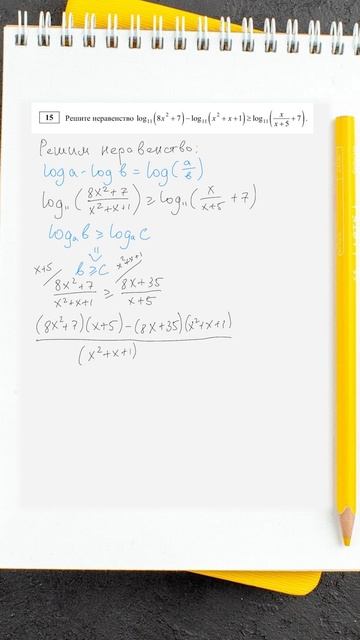 15 Решите неравенство log₁₁(8x²+7)−log₁₁(x²+x+1)≥log₁₁(x/(x+5)+7).
Решим неравенство:
log a - log b = log(a/b)
log₁₁((8x²+7)/(x²+x+1)) ≥ log₁₁(x/(x+5) + 7)
logₐb ≥ logₐc
x+5/ b ≥ c x²+x+1/
(8x²+7)/(x²+x+1) ≥ (8x+35)/(x+5)
((8x²+7)(x+5)-(8x+35)(x²+x+1))/
(x²+x+1)